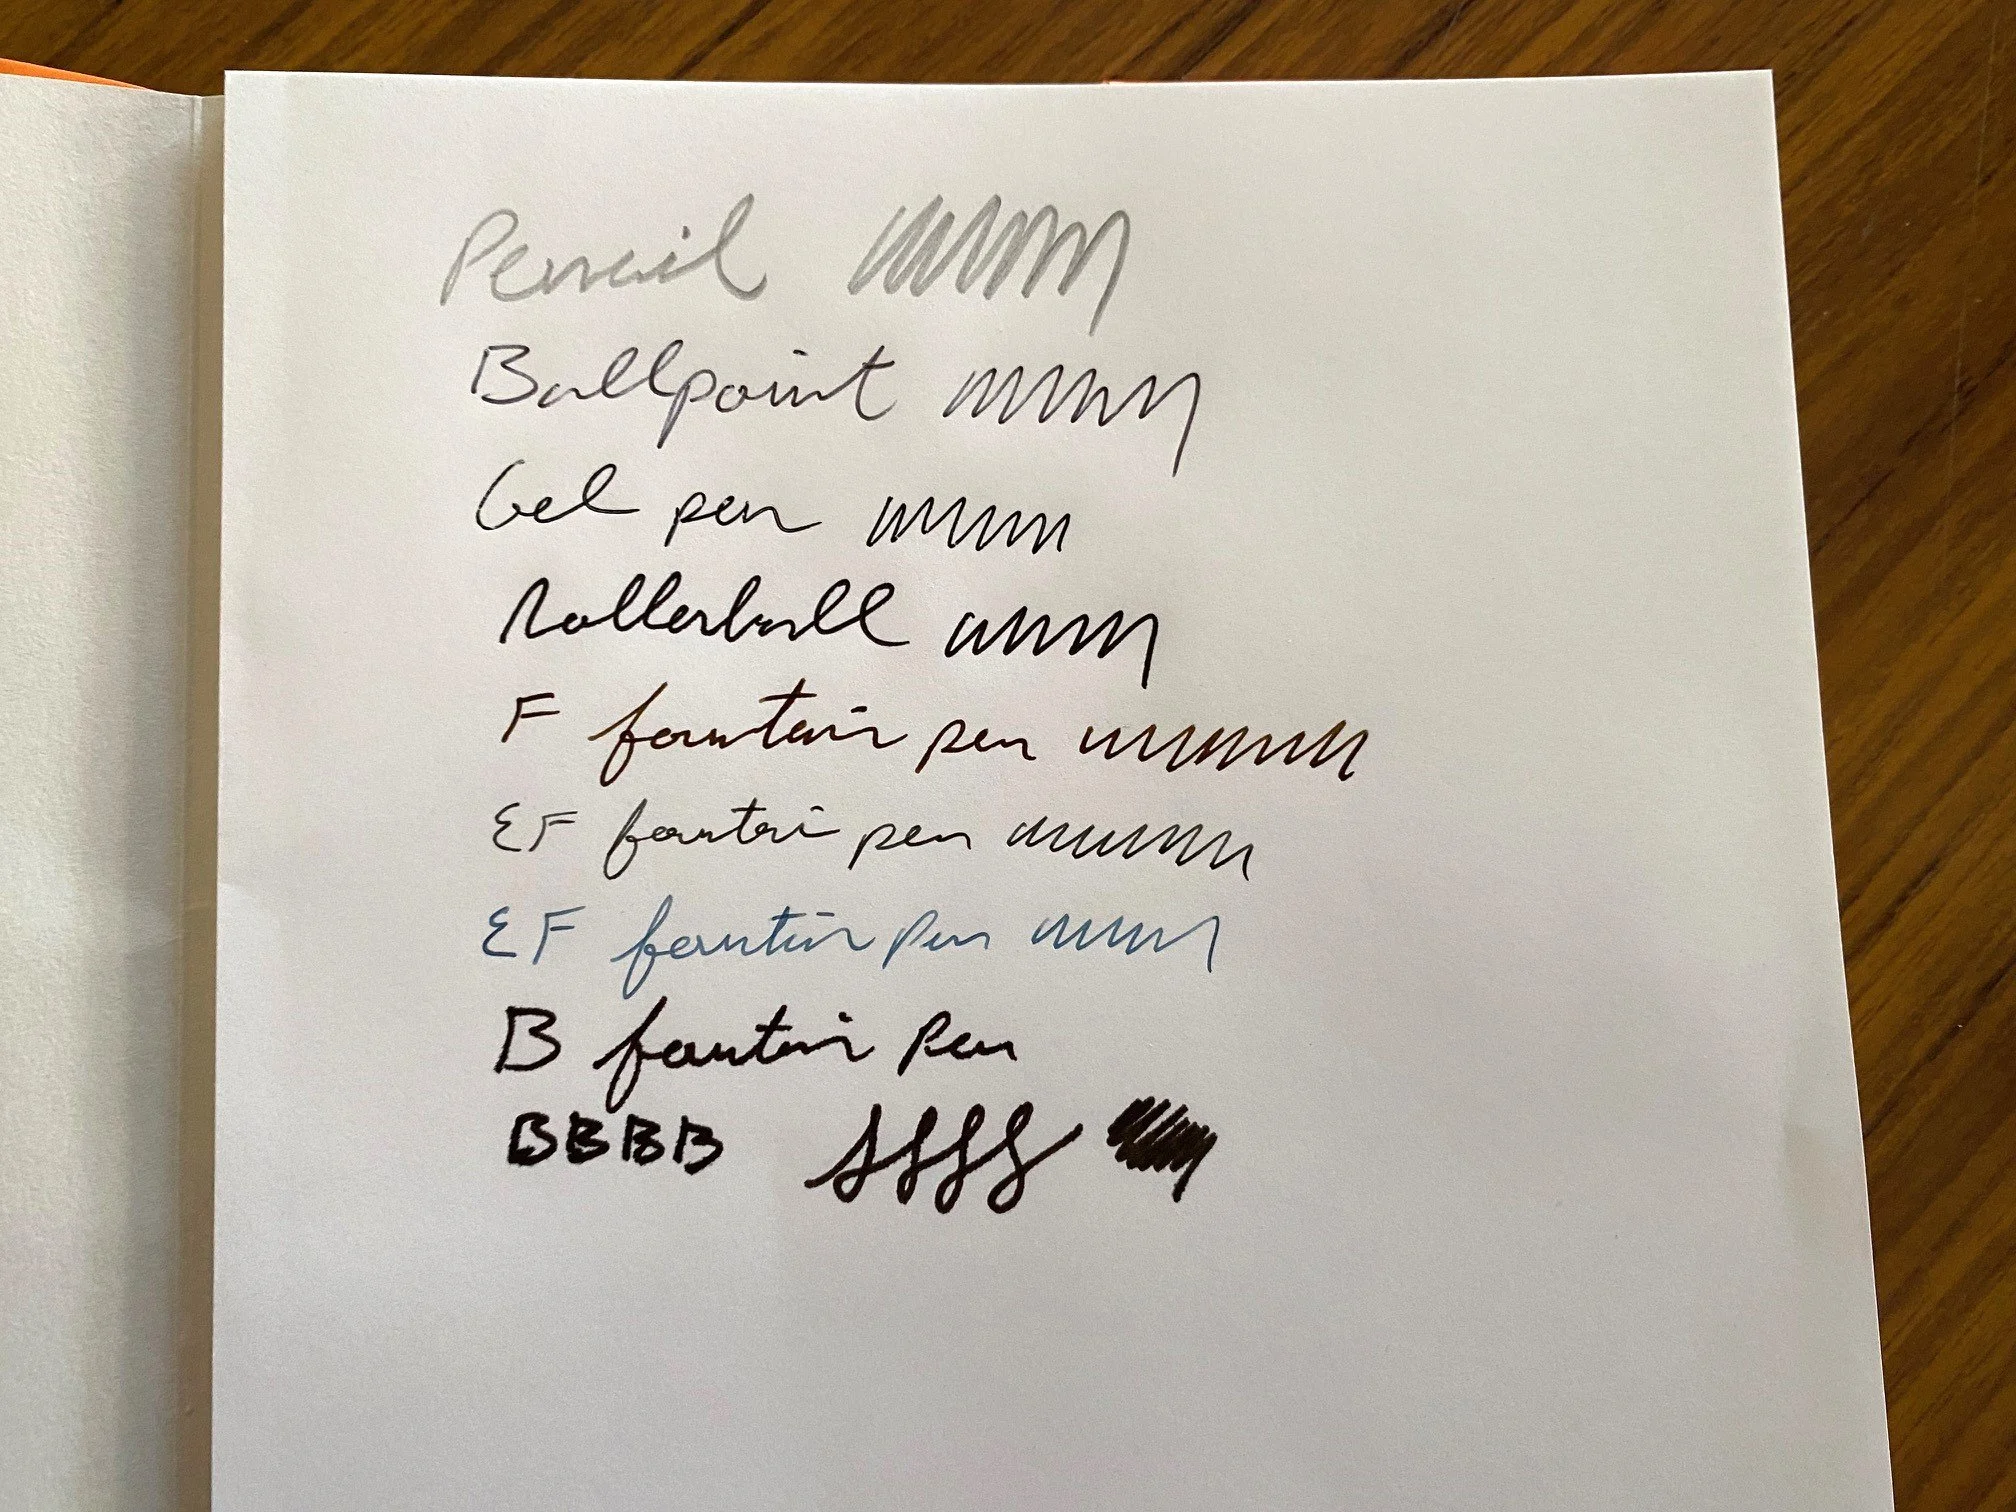 Pencil
Ballpoint
Gel pen
Rollerball
F fountain pen
EF fountain pen
EF fountain pen
B fountain pen
BBBB